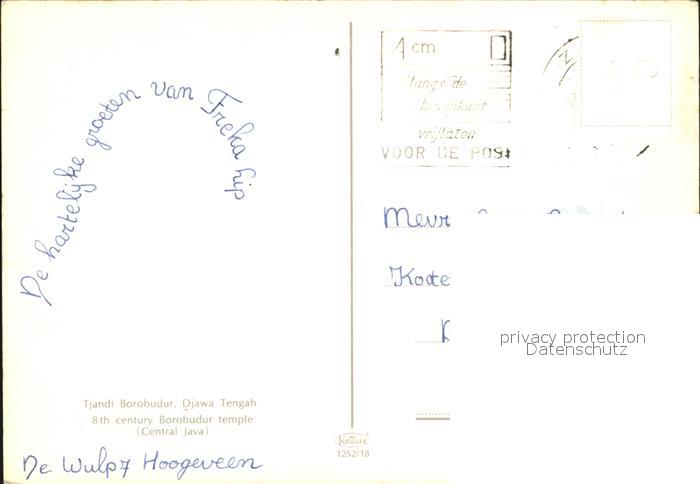 De hartelijke groeten van Freka hip
Tjandi Borobudur, Djawa Tengah.
8th century Borobudur temple
(Central Java)
De Wulp 7 Hoogeveen
Kruger
1252/18
1 cm
langs de
bovenkant
vrijlaten
VOOR DE POST
Mevr
Kode
privacy protection
Datenschutz